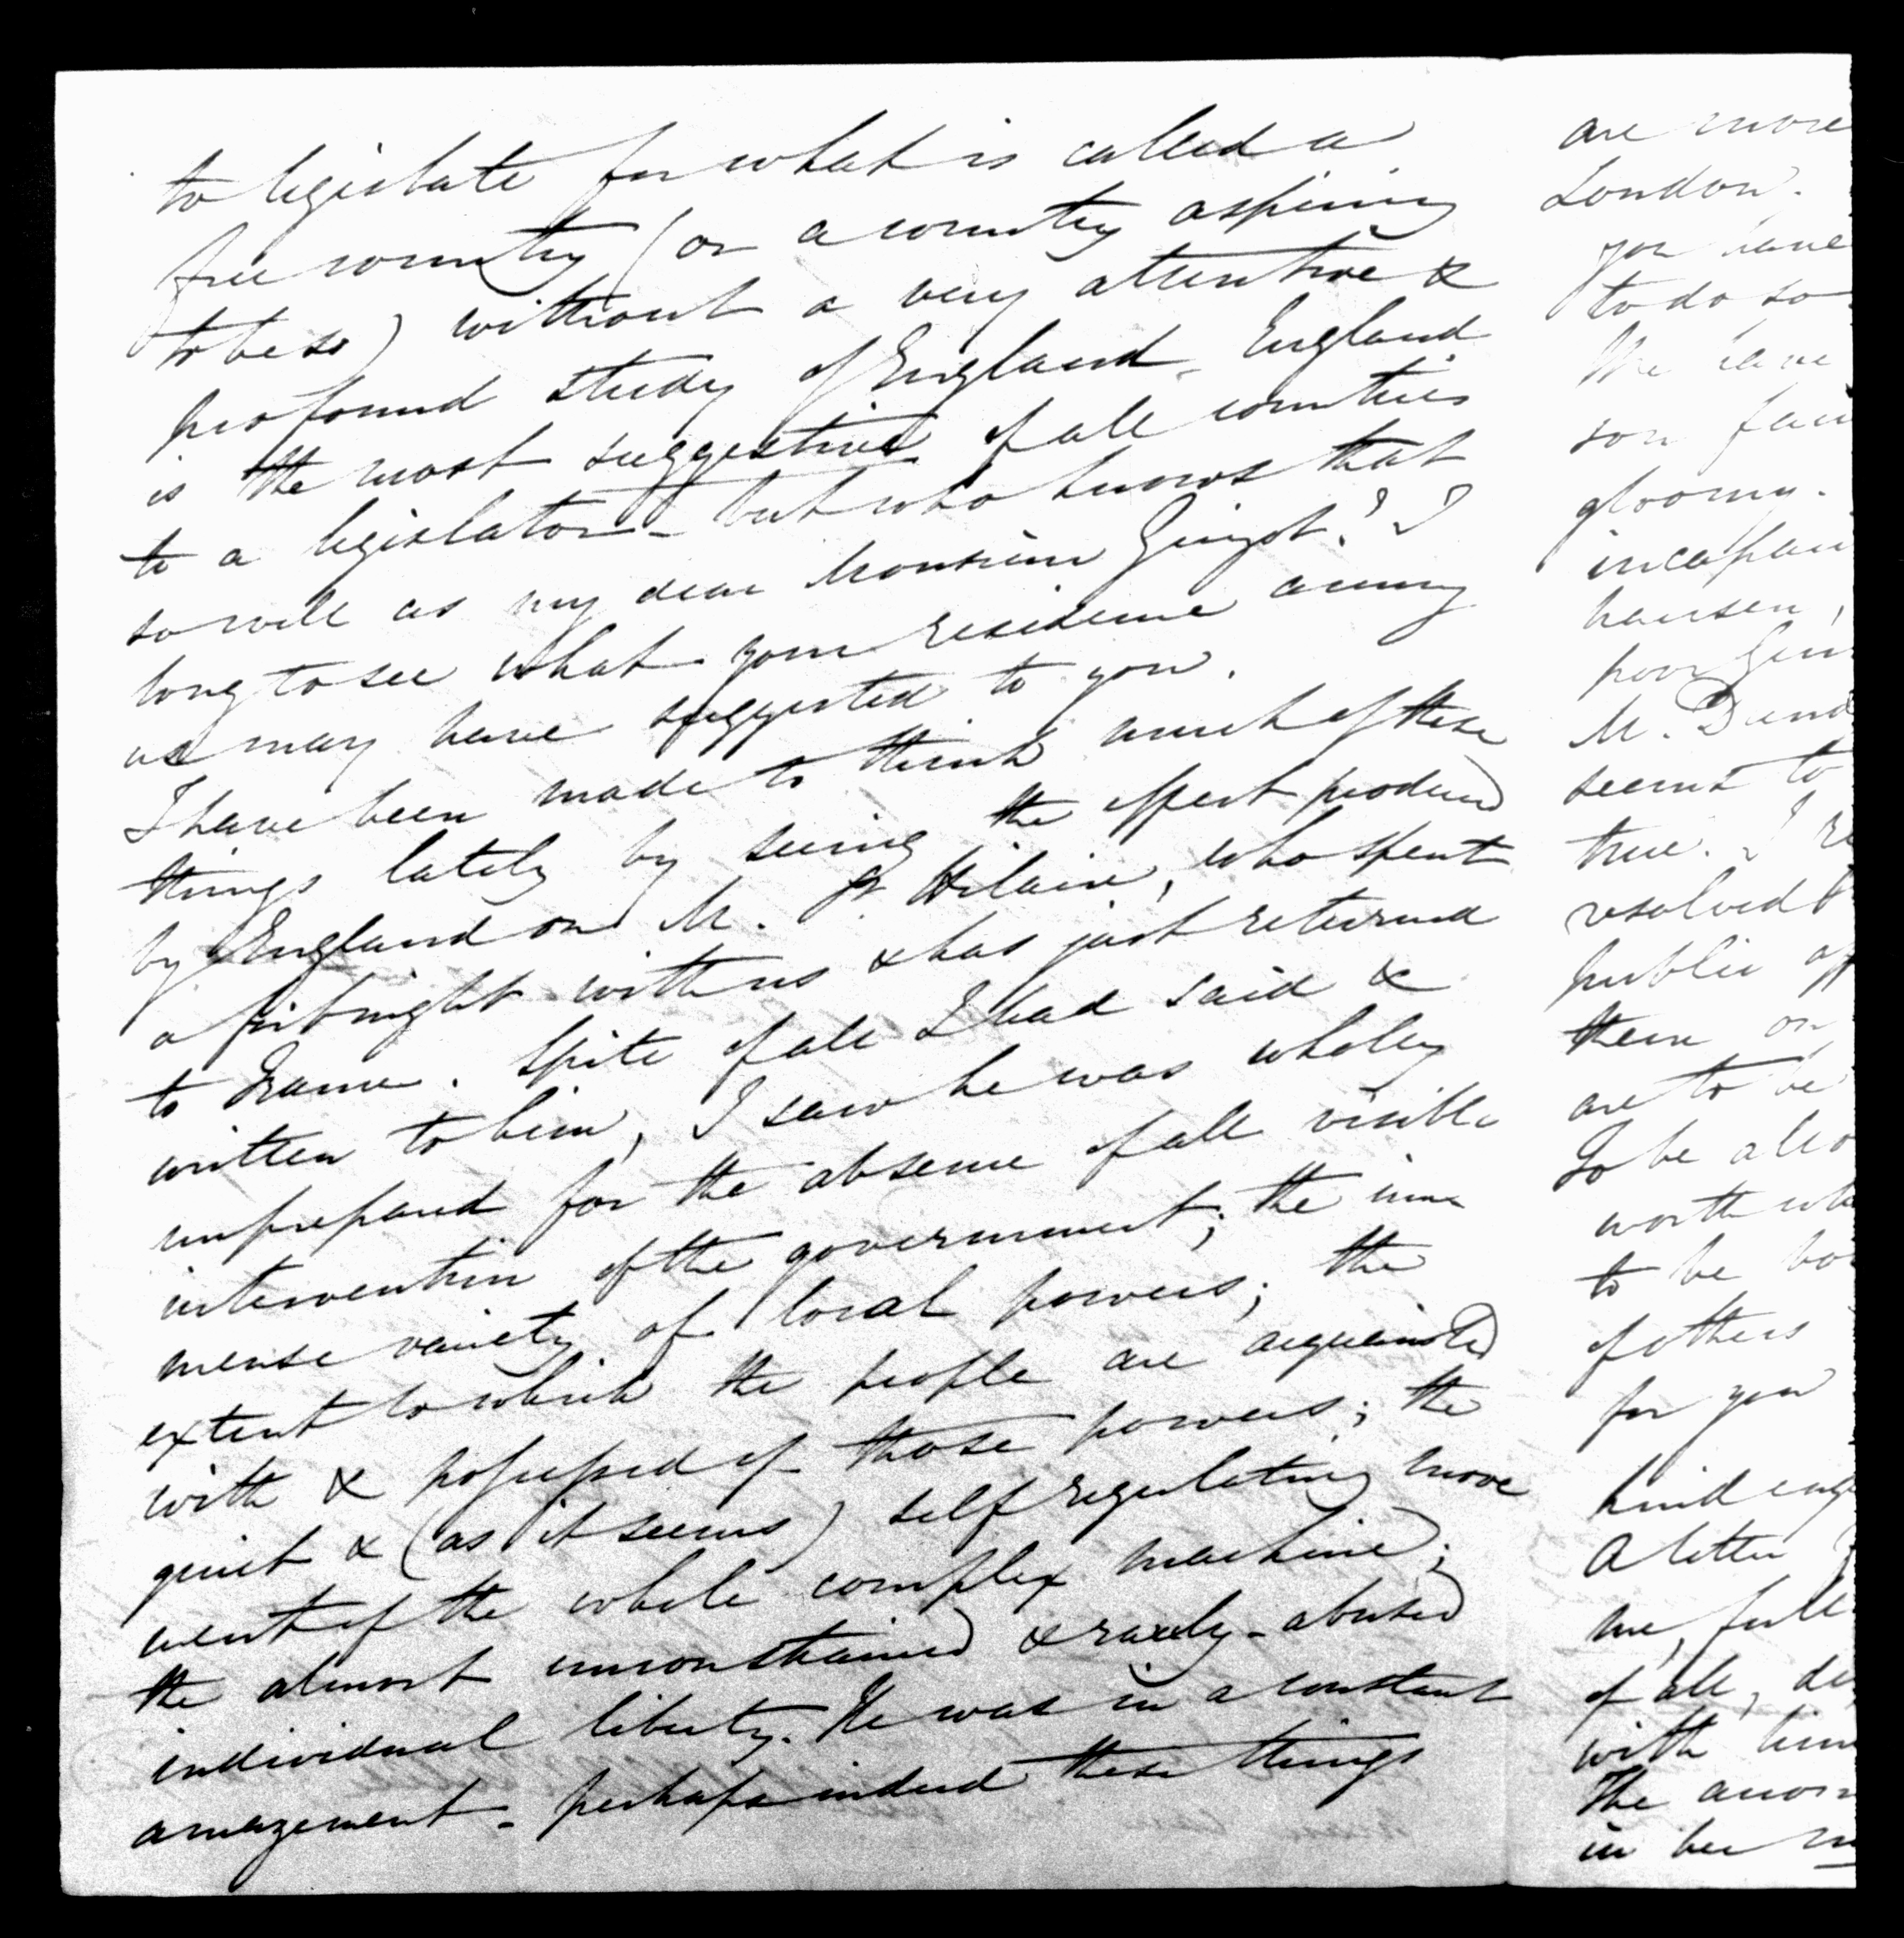 to legislate for what is called a
free country (or a country aspiring
to be so) without a very attentive &
profound study of England. England
is the most suggestive of all countries
to a legislator - but who knows that
so well as my dear Monsieur Guizot? I
long to see what your residence among
us may have suggested to you.
I have been made to think much of these
things lately by seeing the effect produced
by England on M. St Hilaire, who spent
a fortnight with us & has just returned
to France. Spite of all I had said &
written to him, I saw he was wholly
unprepared for the absence of all visible
intervention of the government; the im
mense variety of local powers; the
extent to which the people are acquainted
with & possessed of those powers; the
quiet & (as it seems) self regulating move
ment of the whole complex machine;
the almost unconstrained & rarely-abused
individual liberty. He was in a constant
amazement - perhaps indeed these things
are more
London.
you have
to do so
We have
son
gloomy.
hausen,
poor
M.
seems to
true. I
resolved
public
them or
are to be
To be
worth
to be
of others
for you
kind
A letter
me, full
of all,
with him
The
in her